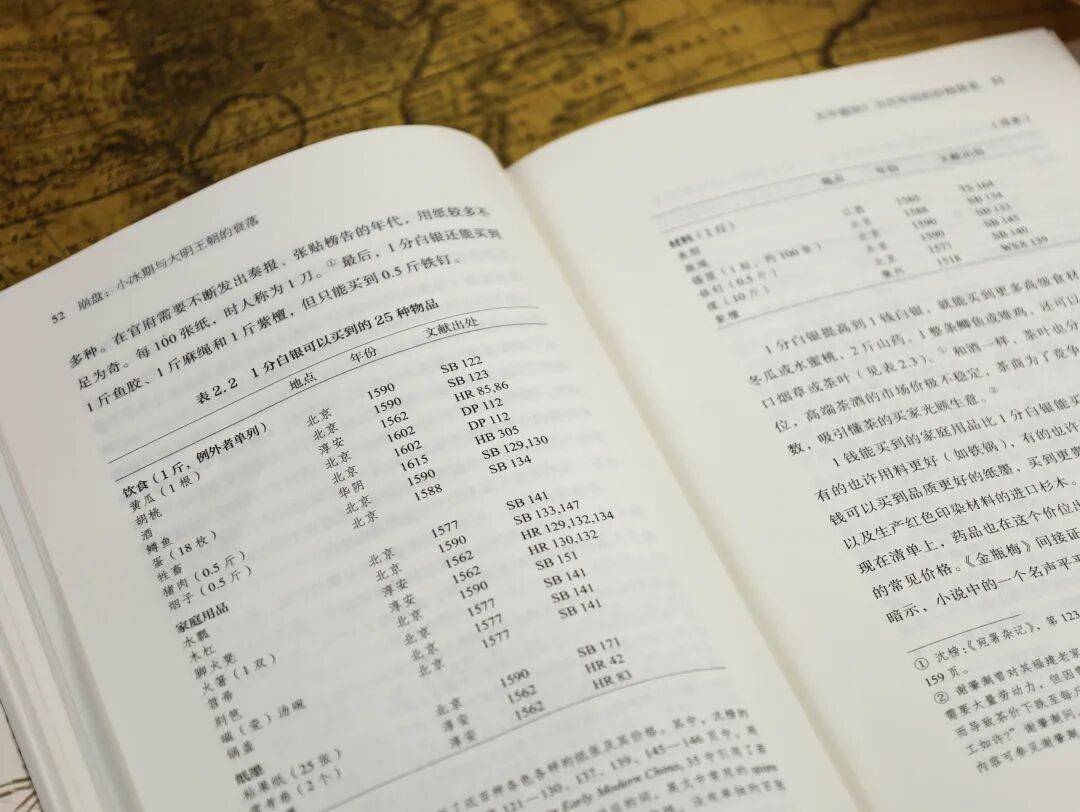 52 崩盘：小冰期与大明王朝的衰落
多种。在官府需要不断发出奏报、张贴榜告的年代，用纸较多不
足为奇。每100张纸，时人称为1刀。①最后，1分白银还能买到
1斤鱼胶、1斤麻绳和1斤紫檀，但只能买到0.5斤铁钉。
表2.2 1分白银可以买到的25种物品
地点 年份 文献出处
饮食（1斤，例外者单列）
黄瓜（1根） 北京 1590 SB 122
胡桃 北京 1590 SB 123
酒 淳安 1562 HR 85,86
鳟鱼 北京 1602 DP 112
蛋（18枚） 北京 1602 DP 112
牲畜 华阴 1615 HB 305
猪肉（0.5斤） 北京 1590 SB 129,130
烟子（0.5斤） 北京 1588 SB 134
家庭用品
水瓢 北京 1577 SB 141
木杠 北京 1590 SB 133,147
脚火凳 淳安 1562 HR 129,132,134
火箸（1双） 淳安 1562 HR 130,132
笤帚 北京 1590 SB 151
荆笆 北京 1577 SB 141
磁（瓷）汤碗 北京 1577 SB 141
锅盖 北京 1577
纸墨
桔果纸（25张） 北京 1590 SB 171
淳安 1562 HR 42
淳安 1562 HR 83
53
（续表）
地点 年份 文献出处
材料（1斤）
1588 SB 134
（1刀，约100张） 1590 SB 133
铁钉（0.5斤） 1590 SB 145
煤（10斤） 1577
紫檀 1518 WSX 139
1分白银提高到1钱白银，就能买到更多高级食材
冬瓜或水蜜桃，2斤山药，1整条鲫鱼或雉鸡，还可以
口烟草或茶叶（见表2.3）。①和酒一样，茶叶也分
位，高端茶酒的市场价极不稳定，茶商为了竞争
数，吸引懂茶的买家光顾生意。②
1钱能买到的家庭用品比1分白银能买
有的也许用料更好（如铁锅），有的也许
钱可以买到品质更好的纸墨，买到更
以及生产红色印染材料的进口杉木。
现在清单上，药品也在这个价位
的常见价格。《金瓶梅》间接证
暗示，小说中的一个名声平平
① 沈榜：《宛署杂记》，第123
159页。
② 谢肇淛曾对其福建老家
需要大量劳动力，但因
而导致茶价下跌至每斤
工如许？”谢肇淛问，
内容可参见谢肇淛